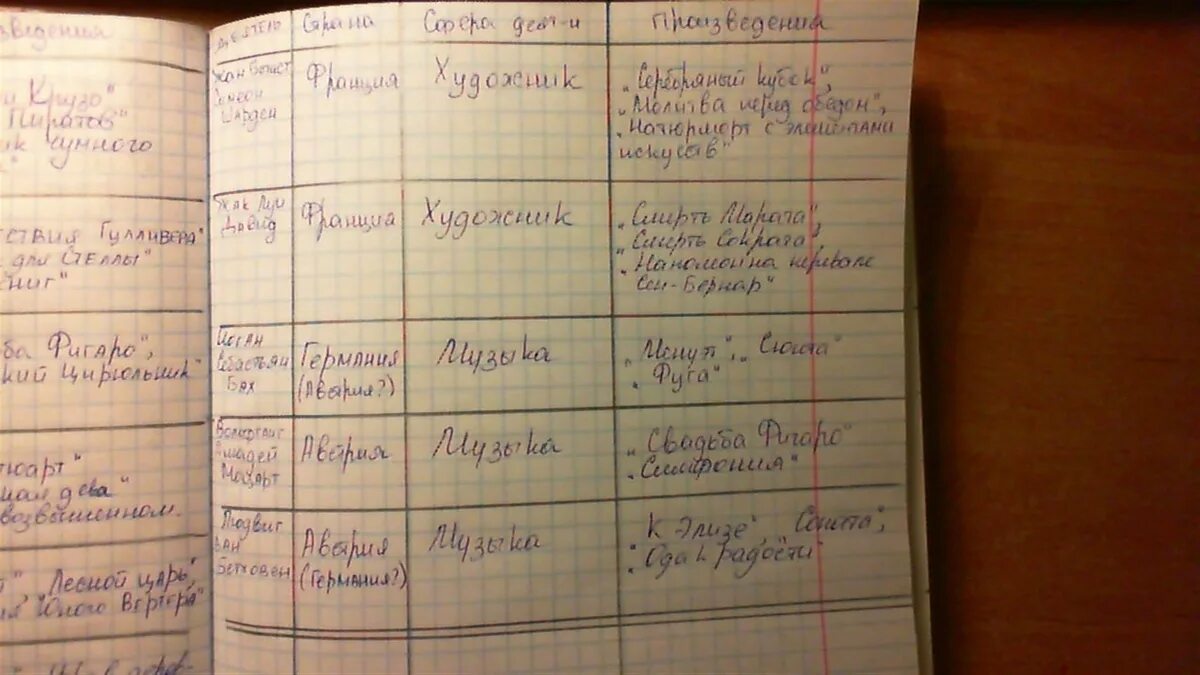 зведения
и Крузо"
Пиратов"
ик чумного
"
ствия Гулливера"
для Стеллы"
ниг"
ба Фигаро",
кий цирюльник"
юарт"
дева"
возвышенном.
", Лесной царь",
ия Юного Вертера"
Деятель Страна Сфера деят-и Произведения
Жан Батист
Симеон
Шарден
Франция
Художник
„Серебряный кубок",
„Молитва перед обедом",
„Натюрморт с элементами
искусств"
Жак Луи
Давид
Франциа
Художник
„Смерть Марата",
„Смерть Сократа",
„Наполеон на перевале
Сен-Бернар"
Иоган
Себастьян
Бах
Германия
(Австрия?)
Музыка
„Менуэт", „Сюита"
„Фуга"
Вольфганг
Амадей
Моцарт
Австрия
Музыка
„Свадьба Фигаро"
„Симфония"
Людвиг
ван
Бетховен
Австрия
(Германия?)
Музыка
К Элизе", Соната",
„Ода к радости"